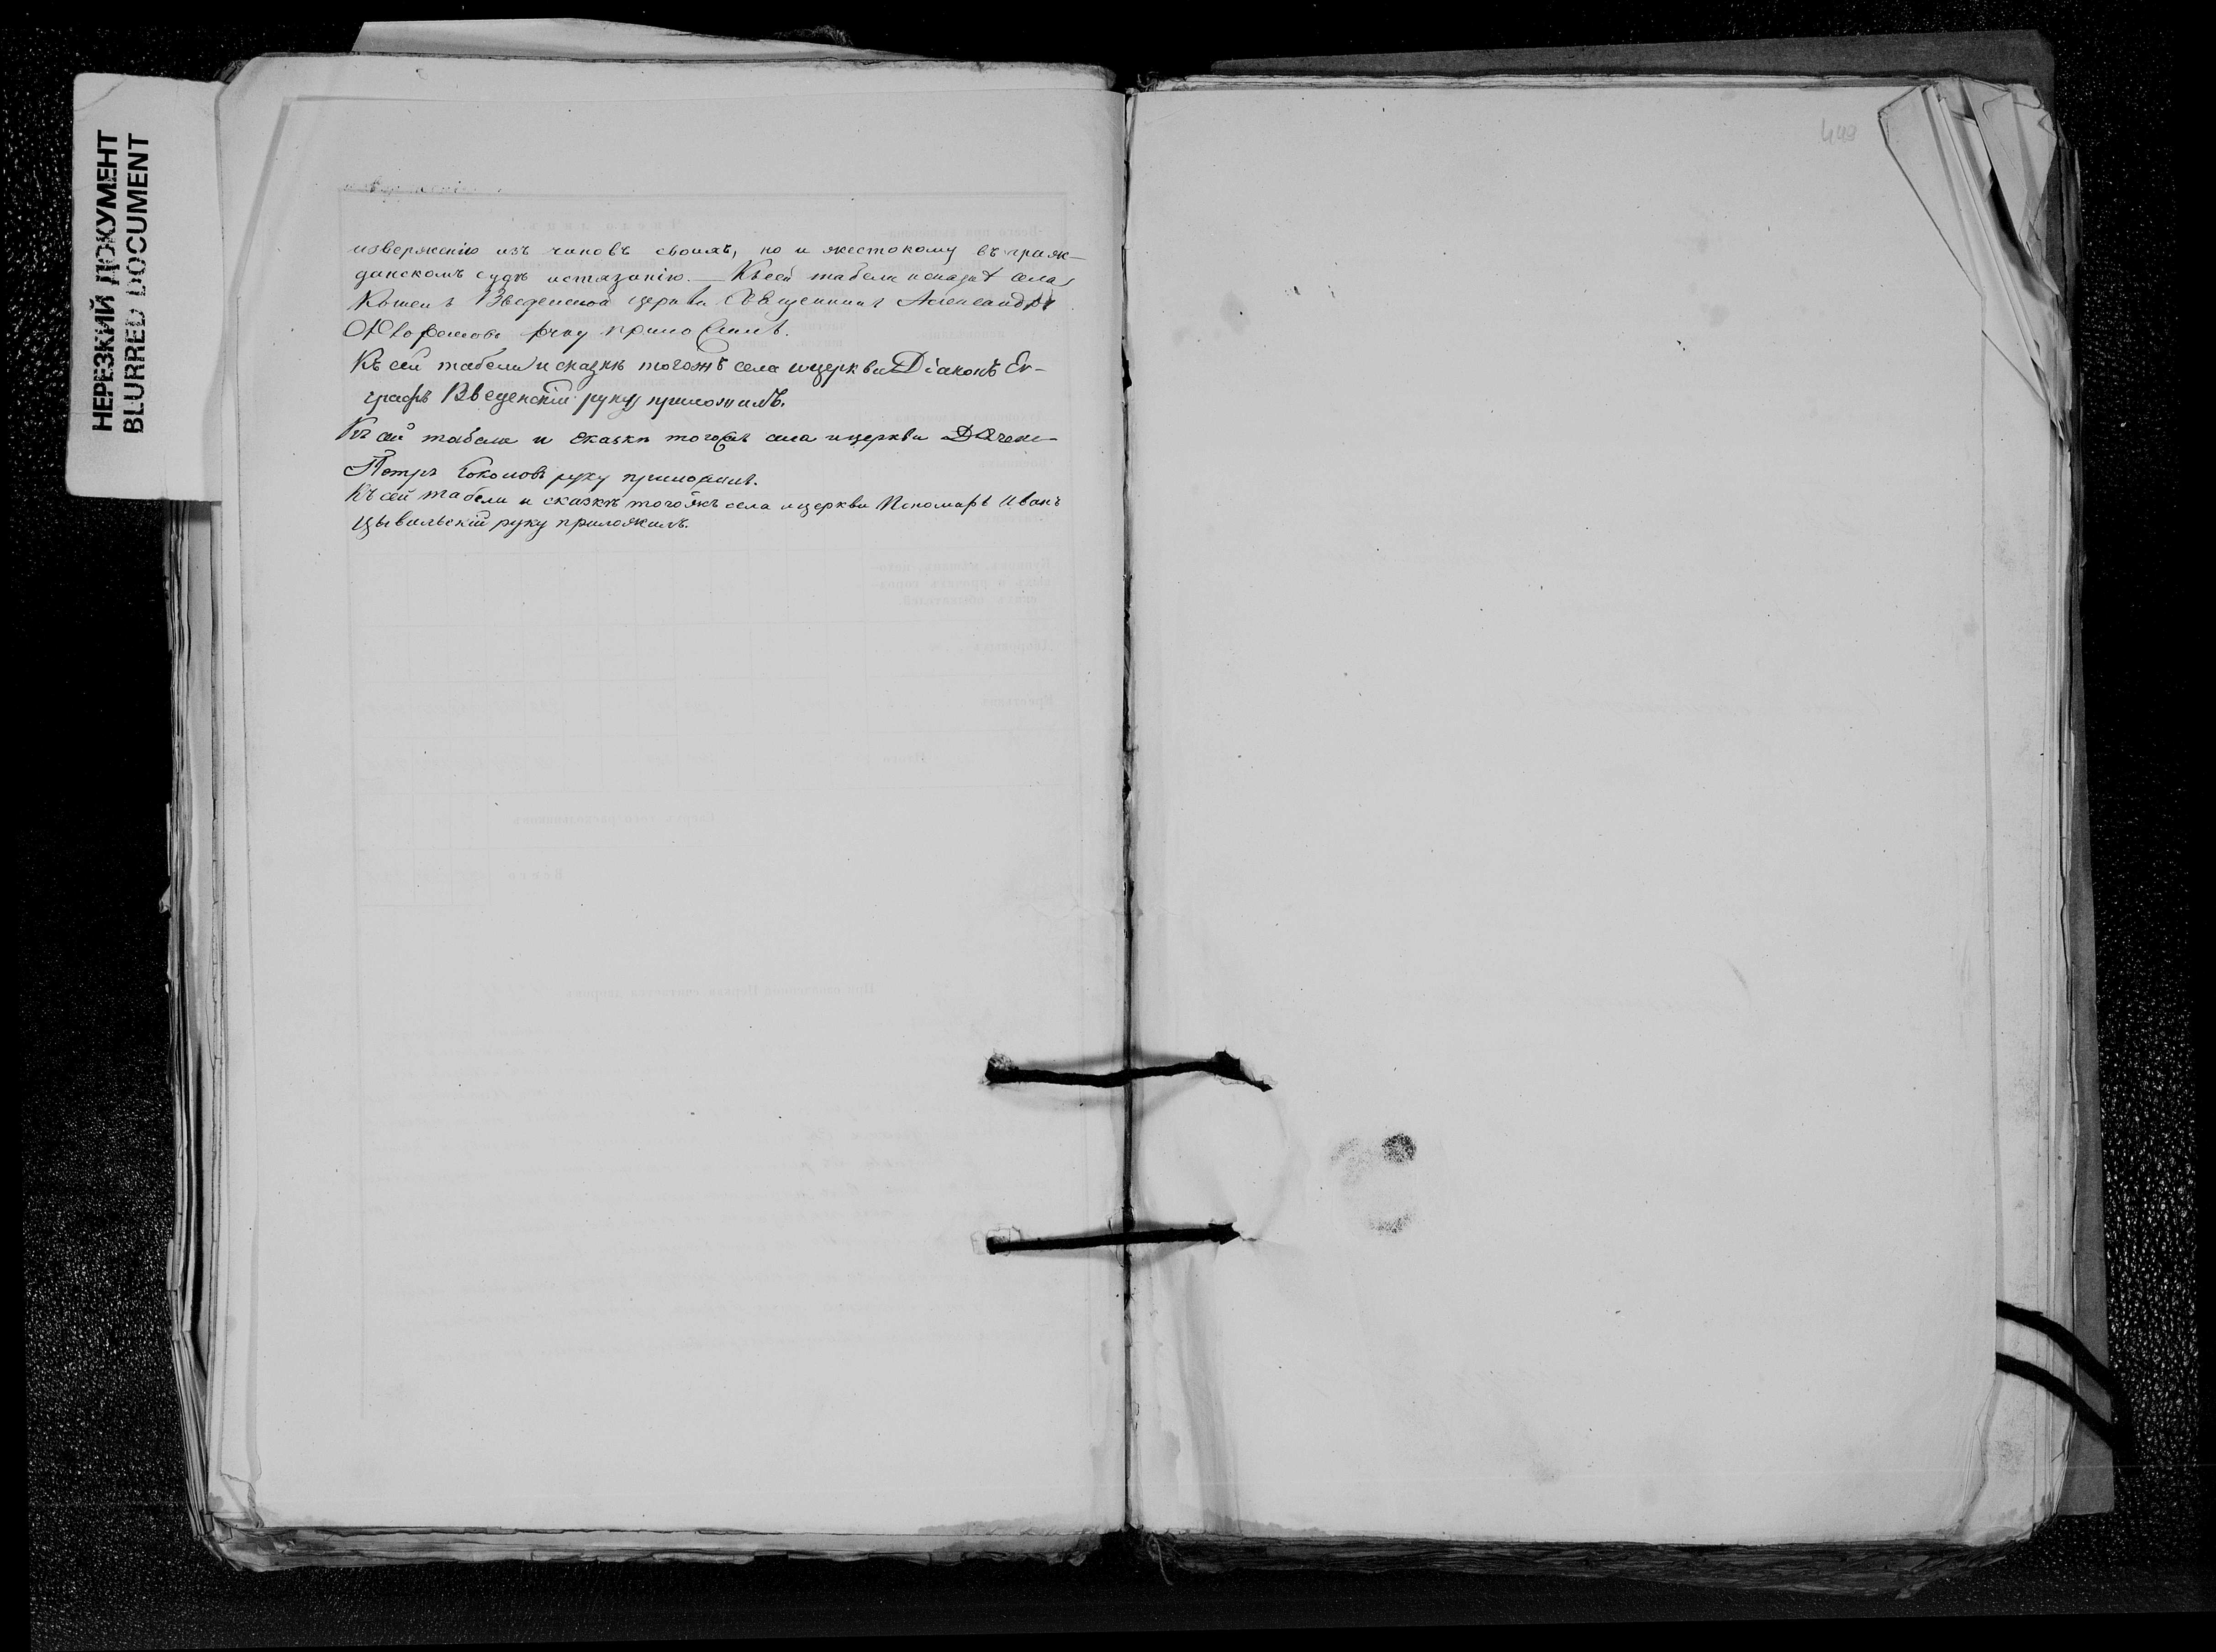 НЕРЕЗКИЙ ДОКУМЕНТ
BLURRED DOCUMENT
449
изверженію изъ чиновъ своихъ, но и жестокому въ граж-
данскомъ судѣ истязанію. — Къ сей табели и сказкѣ села
Введенской церкви Священникъ Александръ
руку приложилъ.
Къ сей табели и сказкѣ тогожъ села и церкви Діаконъ Ев-
графъ Введенскій руку приложилъ.
Къ сей табели и сказкѣ тогожъ села и церкви Дьячекъ
Петръ Соколовъ руку приложилъ.
Къ сей табели и сказкѣ тогожъ села и церкви Пономарь Иванъ
Цывильскій руку приложилъ.